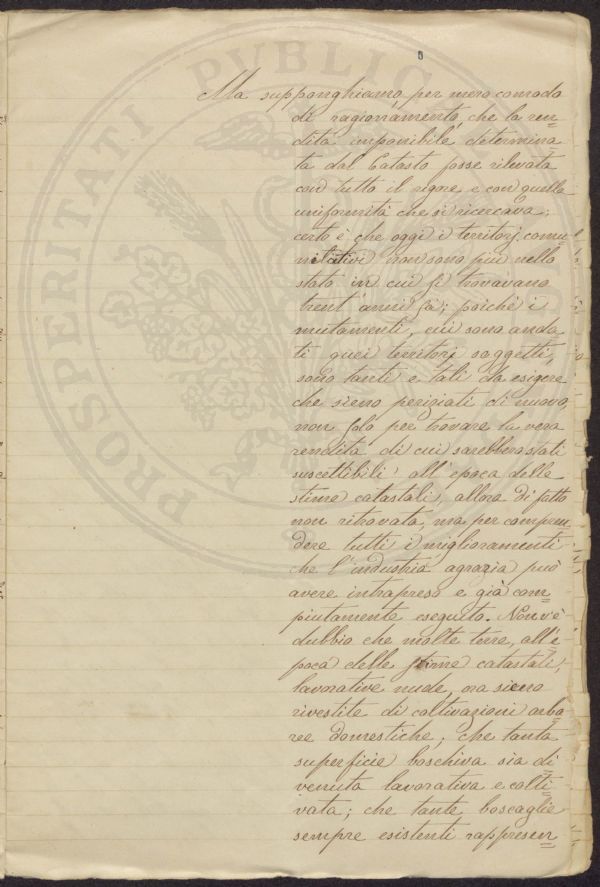 Ma supponghiamo, per mero comodo
di ragionamento, che la ren=
dita imponibile determina=
ta dal Catasto fosse rilevata
con tutto il rigore e con quella
uniformità che si ricercava;
certo è che oggi i territorj comu=
nitativi non sono più nello
stato in cui si trovavano
trent'anni fà; poichè i
mutamenti, cui sono anda
ti quei territorj soggetti,
sono tanti e tali da esigere
che sieno periziati di nuovo,
non solo per trovare la vera
rendita di cui sarebbero stati
suscettibili all'epoca delle
stime catastali, allora di fatto
non ritrovata, ma per compren=
dere tutti i miglioramenti
che l'industria agraria può
avere intrapreso e già com=
piutamente eseguito. Non v'è
dubbio che molte terre, all'e=
poca delle stime catastali,
lavorative nude, ora sieno
rivestite di coltivazioni arbo=
ree domestiche; che tanta
superficie boschiva sia di=
venuta lavorativa e colti=
vata; che tante boscaglie
sempre esistenti rappresen=
PROSPERITATI PVBLICAE